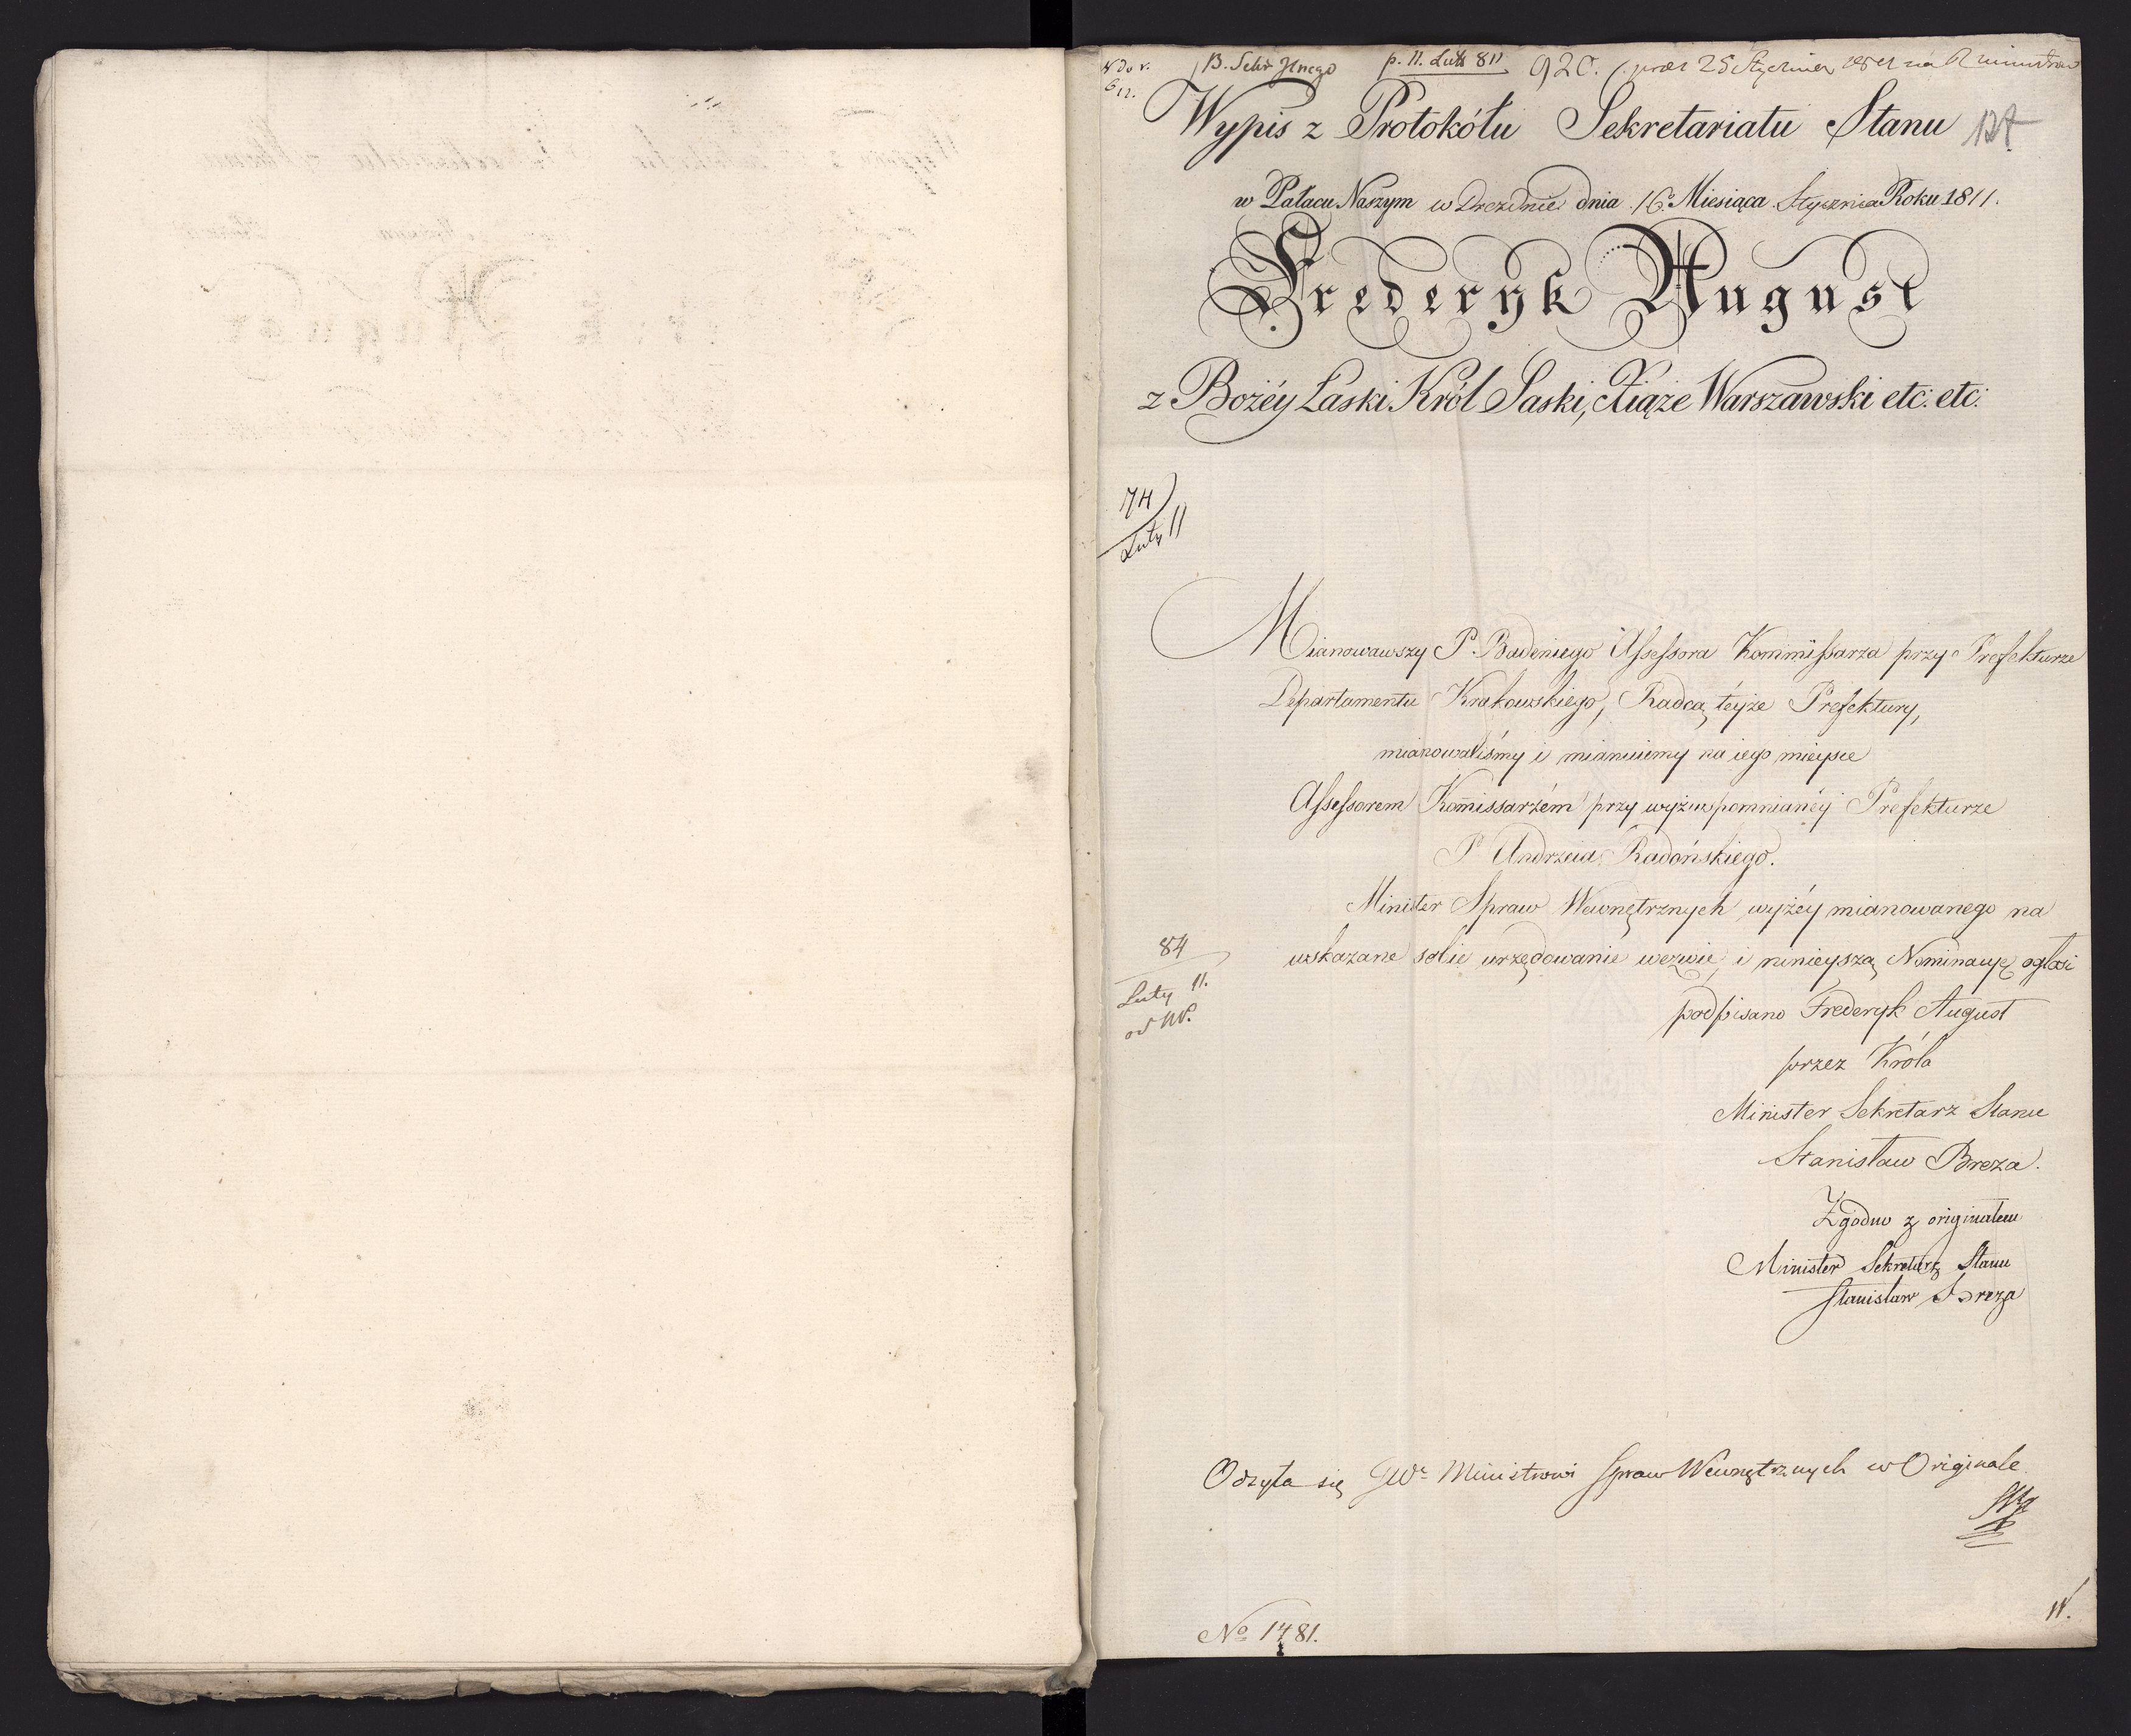 B. Sekr Jlnego p. 11. Luty 811 920.
Wypis z Protokółu Sekretariatu Stanu
w Pałacu Naszym w Dreźdnie dnia 16. Miesiąca Stycznia Roku 1811.
Frederyk August
z Bożéy Łaski Król Saski, Xiąże Warszawski etc: etc:
74
Luty 11
Mianowawszy P. Badeniego Assessora Kommissarza przy Prefekturze
Departamentu Krakowskiego, Radcą téyże Prefektury,
mianowaliśmy i mianuiemy na iego mieysce
Assessorem Kom̄issarzém przy wyżwspomnianéy Prefekturze
P. Andrzeia Radońskiego.
Minister Spraw Wewnętrznych wyżéy mianowanego na
wskazane sobie urzędowanie wezwie, i ninieyszą Nominacyę ogłosi
84
Luty 11.
podpisano Frederyk August
przez Króla
Minister Sekretarz Stanu
Stanisław Breza.
Zgodno z originałem
Minister Sekretarz Stanu
Stanisław Breza
Odsyła się JWu Ministrowi Spraw Wewnętrznych w Originale
No 1481.